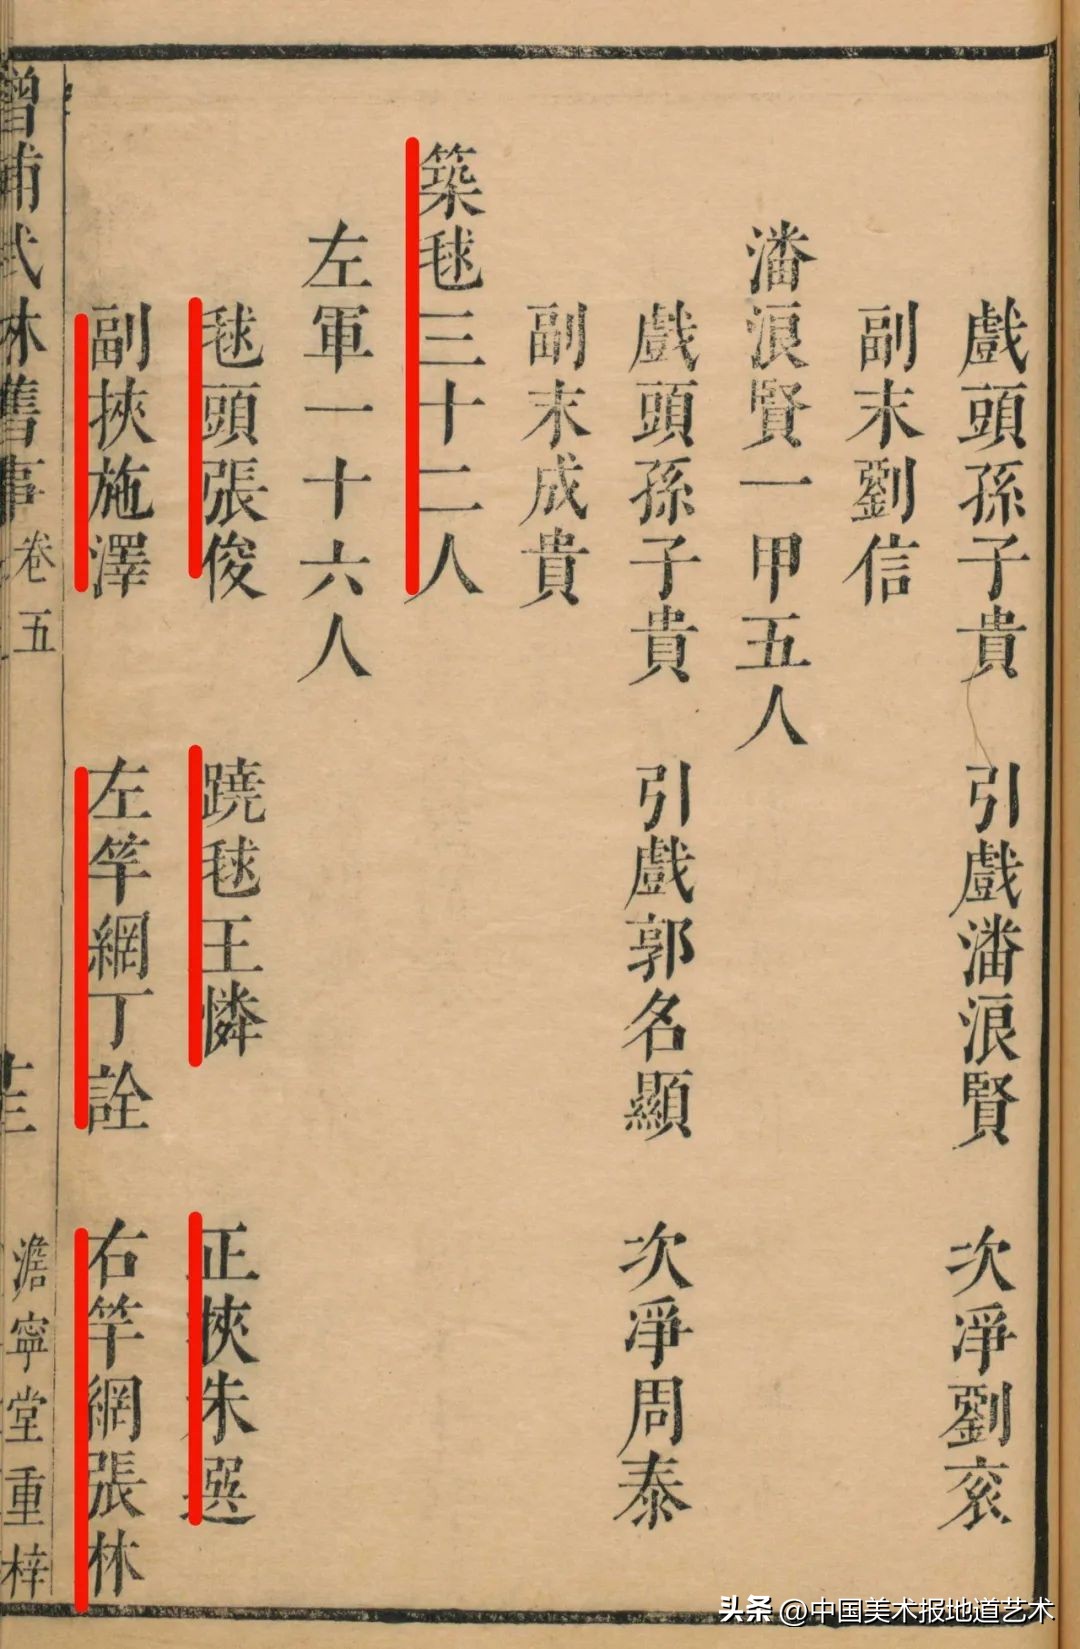 戲頭孫子貴 引戲潘浪賢 次淨劉衮
副末劉信
潘浪賢一甲五人
戲頭孫子貴 引戲郭名顯 次淨周泰
副末成貴
築毬三十二人
左軍一十六人
毬頭張俊 蹺毬王憐 正挾朱選
副挾施澤 左竿網丁詮 右竿網張林
增補武林舊事 卷五 澹寧堂重梓
头条 @中国美术报地道艺术